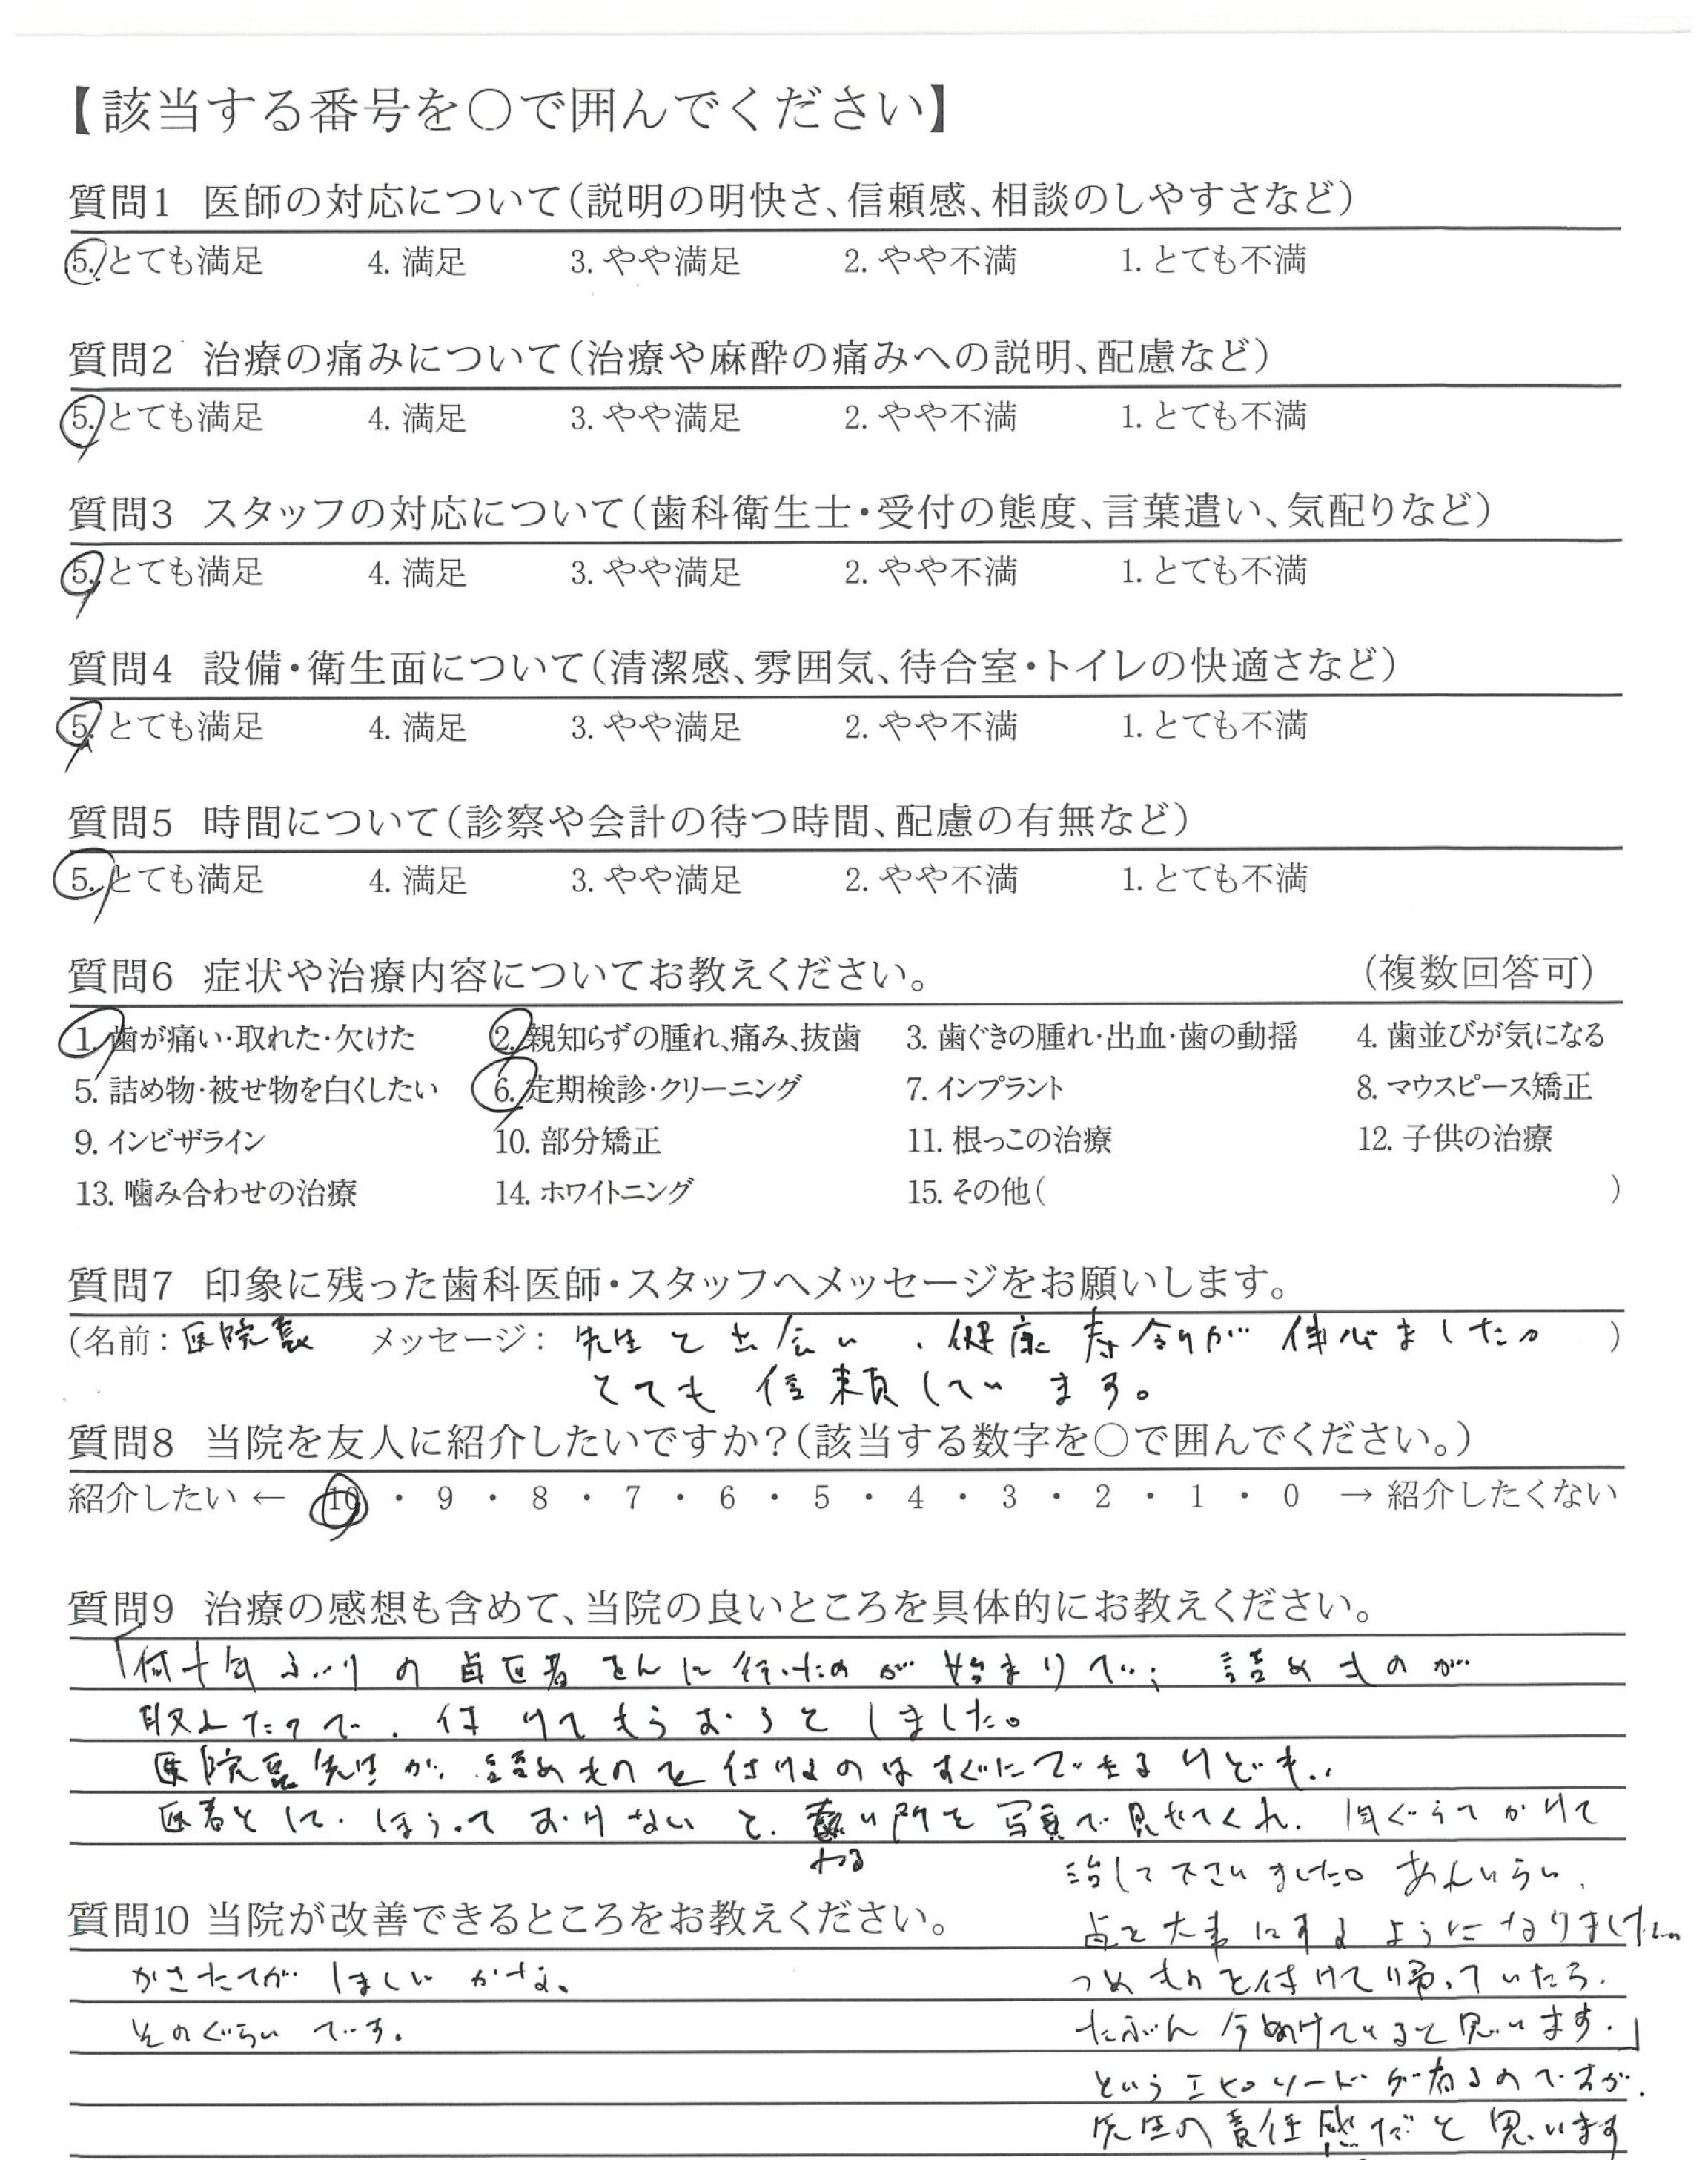 【該当する番号を〇で囲んでください】
質問1 医師の対応について（説明の明快さ、信頼感、相談のしやすさなど）
5. とても満足 4. 満足 3. やや満足 2. やや不満 1. とても不満
質問2 治療の痛みについて（治療や麻酔の痛みへの説明、配慮など）
5. とても満足 4. 満足 3. やや満足 2. やや不満 1. とても不満
質問3 スタッフの対応について（歯科衛生士・受付の態度、言葉遣い、気配りなど）
5. とても満足 4. 満足 3. やや満足 2. やや不満 1. とても不満
質問4 設備・衛生面について（清潔感、雰囲気、待合室・トイレの快適さなど）
5. とても満足 4. 満足 3. やや満足 2. やや不満 1. とても不満
質問5 時間について（診察や会計の待つ時間、配慮の有無など）
5. とても満足 4. 満足 3. やや満足 2. やや不満 1. とても不満
質問6 症状や治療内容についてお教えください。 （複数回答可）
1. 歯が痛い・取れた・欠けた 2. 親知らずの腫れ、痛み、抜歯 3. 歯ぐきの腫れ・出血・歯の動揺 4. 歯並びが気になる
5. 詰め物・被せ物を白くしたい 6. 定期検診・クリーニング 7. インプラント 8. マウスピース矯正
9. インビザライン 10. 部分矯正 11. 根っこの治療 12. 子供の治療
13. 噛み合わせの治療 14. ホワイトニング 15. その他（ ）
質問7 印象に残った歯科医師・スタッフへメッセージをお願いします。
（名前：医院長 メッセージ： 先生と出会い、健康寿命が伸びました。 ）
とても信頼しています。
質問8 当院を友人に紹介したいですか？（該当する数字を〇で囲んでください。）
紹介したい ← 10 ・ 9 ・ 8 ・ 7 ・ 6 ・ 5 ・ 4 ・ 3 ・ 2 ・ 1 ・ 0 → 紹介したくない
質問9 治療の感想も含めて、当院の良いところを具体的にお教えください。
「何十年ぶりの歯医者さんに行ったのが始まりで、詰めものが
取れたので、付けてもらおうとしました。
医院長先生が、詰めものを付けるのはすぐにできるけども、
医者として、ほうっておけないと、悪い所を写真で見せてくれ、
わる
治して下さいました。あれいらい、
歯を大事にするようになりました。
つめものを付けて帰っていたら、
たぶん今ぬけていると思います。」
というエピソードが有るのですが、
先生の責任感だと思います
質問10 当院が改善できるところをお教えください。
かさたてがほしいかな。
そのぐらいです。